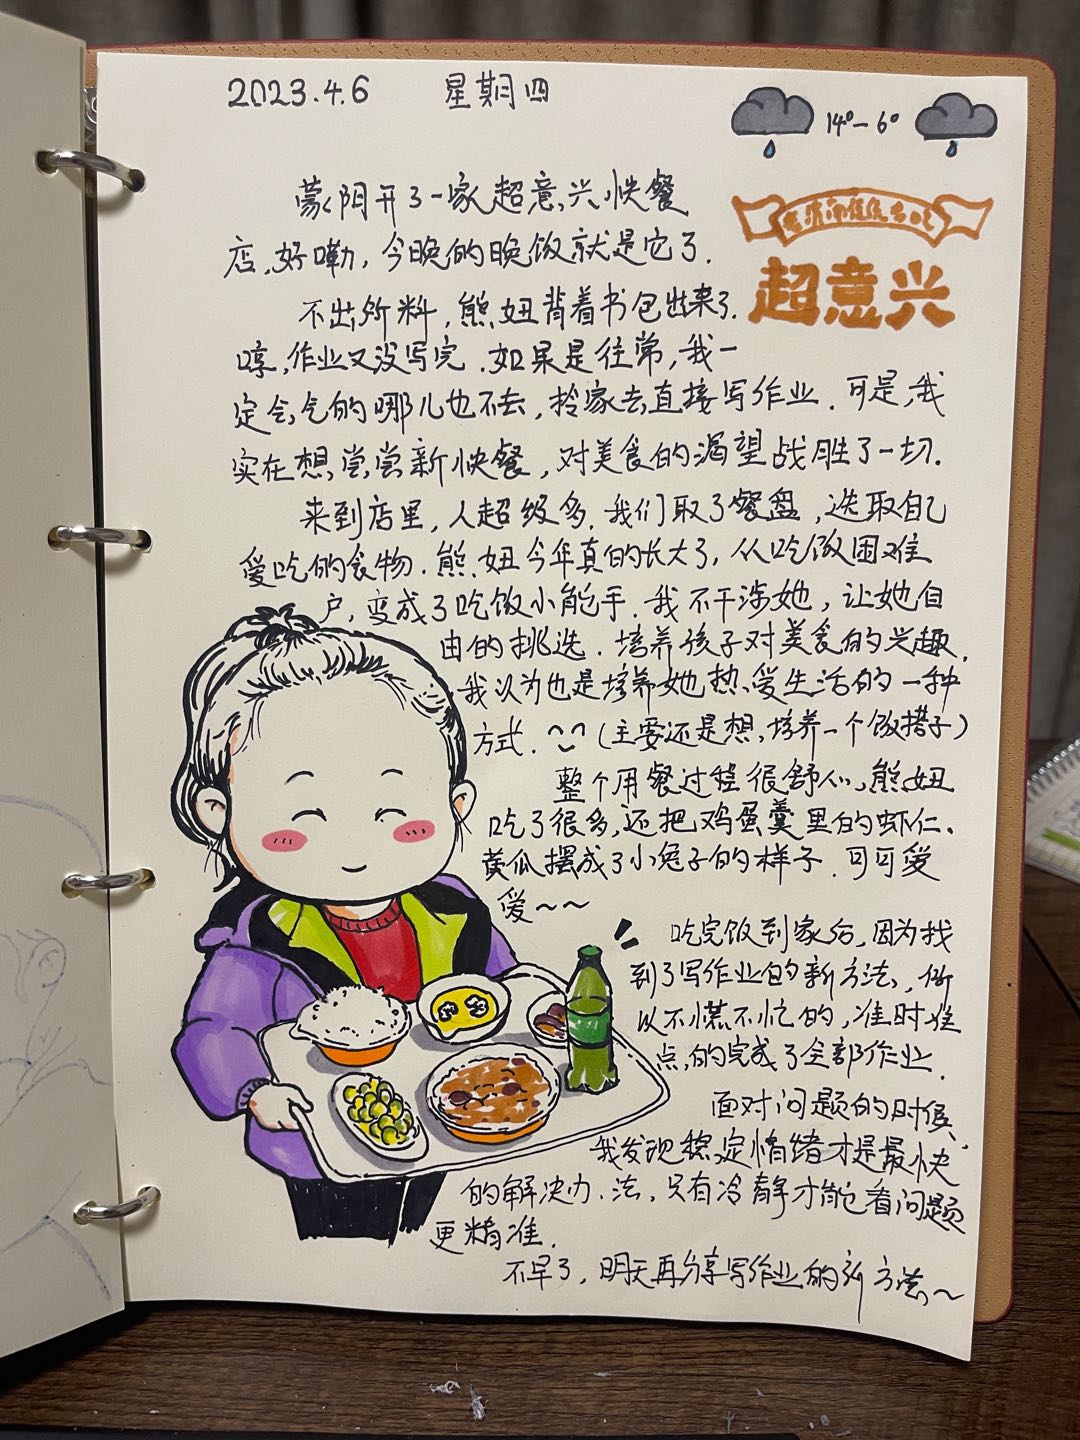 2023.4.6 星期四
14°-6°
超意兴
蒙阴开了一家超意兴快餐
店,好嘞,今晚的晚饭就是它了.
不出所料,熊妞背着书包出来了.
哼,作业又没写完.如果是往常,我一
定会气的哪儿也不去,拎家去直接写作业.可是,我
实在想尝尝新快餐,对美食的渴望战胜了一切.
来到店里,人超级多.我们取了餐盘,选取自己
爱吃的食物.熊妞今年真的长大了,从吃饭困难
户,变成了吃饭小能手.我不干涉她,让她自
由的挑选.培养孩子对美食的兴趣.
我以为也是培养她热爱生活的一种
方式.(主要还是想培养一个饭搭子)
整个用餐过程很舒心,熊妞
吃了很多,还把鸡蛋羹里的虾仁、
黄瓜摆成了小兔子的样子.可可爱
爱~~
吃完饭到家后,因为找
到了写作业的新方法,所
以不慌不忙的,准时准
点的完成了全部作业.
面对问题的时候、
我发现稳定情绪才是最快
的解决办法,只有冷静才能看问题
更精准.
不早了,明天再分享写作业的新方法~